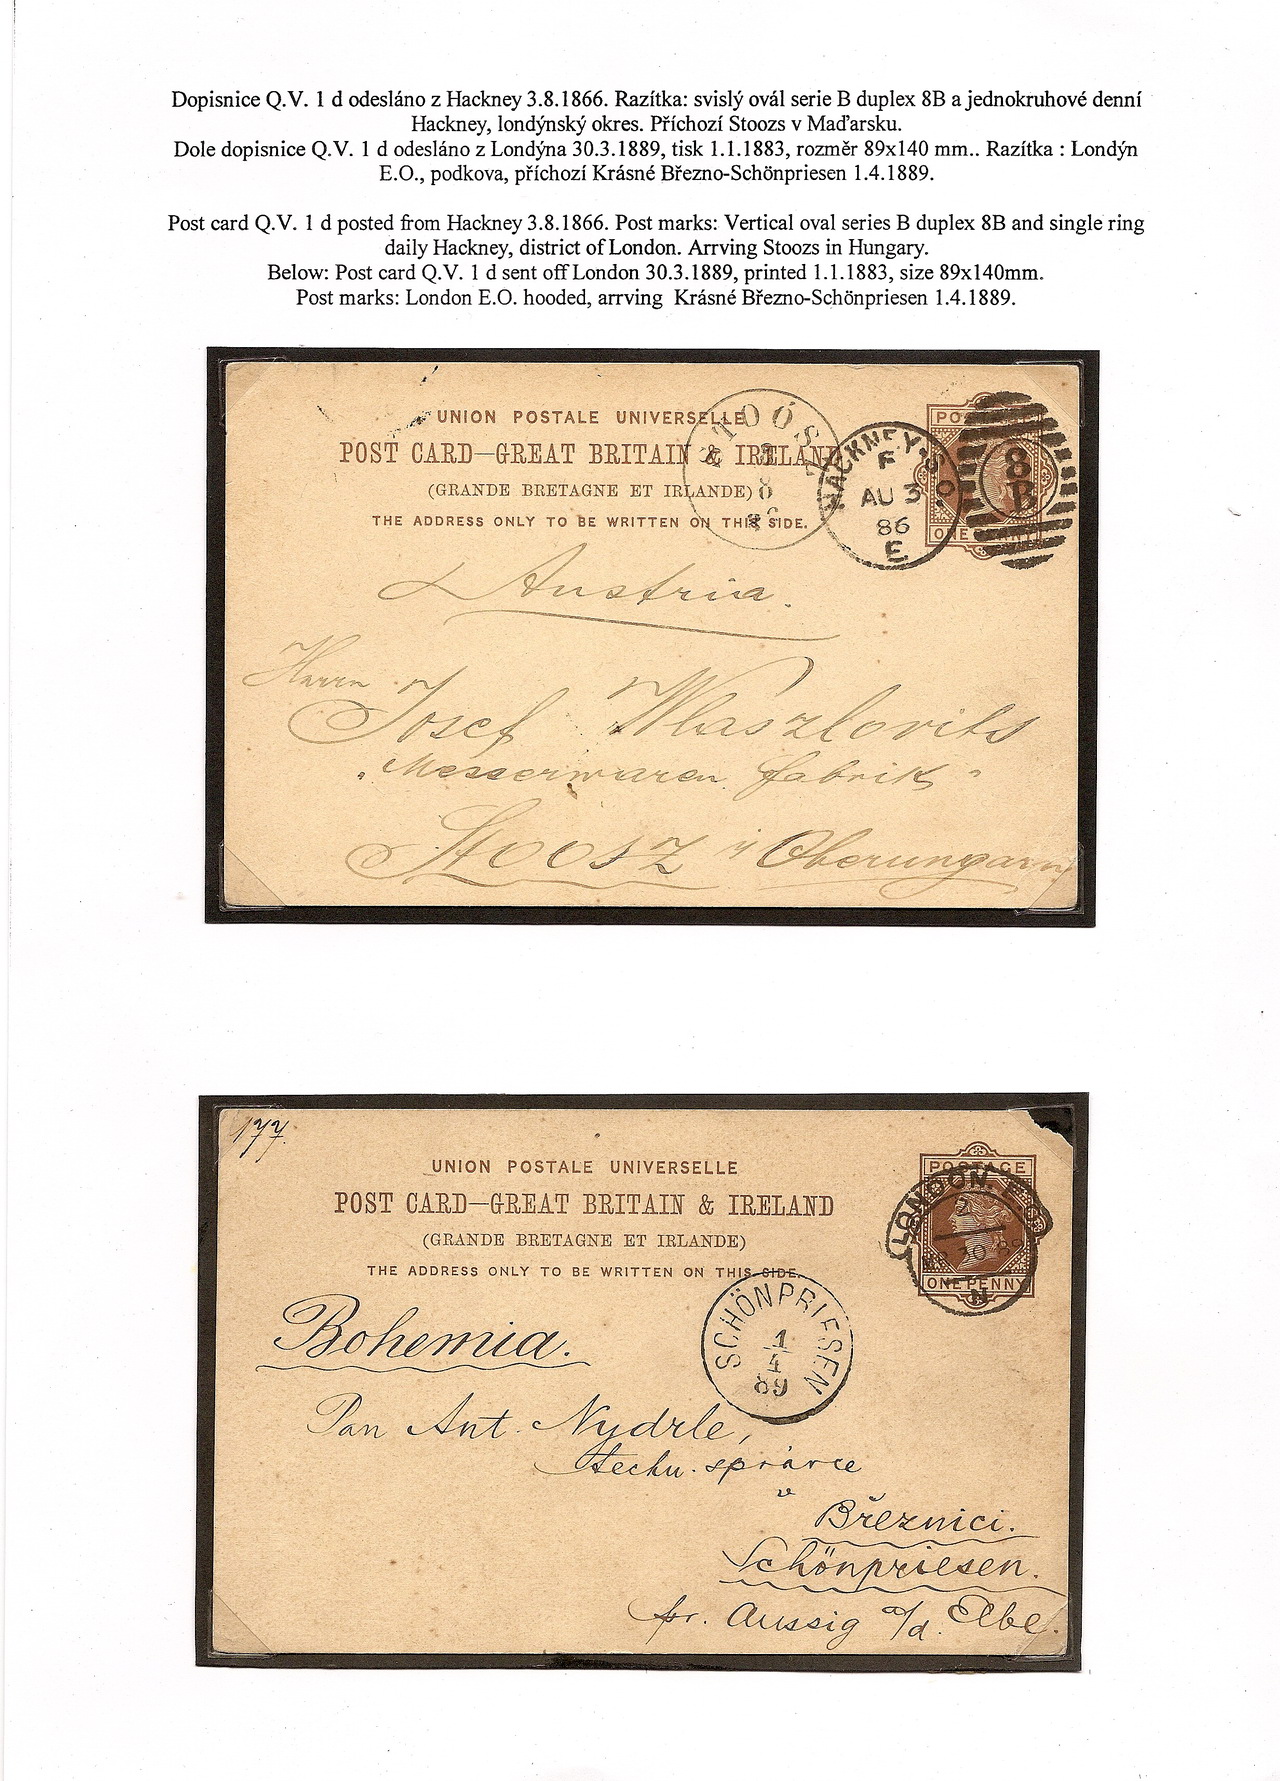 Dopisnice Q.V. 1 d odesláno z Hackney 3.8.1866. Razítka: svislý ovál serie B duplex 8B a jednokruhové denní
Hackney, londýnský okres. Příchozí Stoozs v Maďarsku.
Dole dopisnice Q.V. 1 d odesláno z Londýna 30.3.1889, tisk 1.1.1883, rozměr 89x140 mm.. Razítka : Londýn
E.O., podkova, příchozí Krásné Březno-Schönpriesen 1.4.1889.
Post card Q.V. 1 d posted from Hackney 3.8.1866. Post marks: Vertical oval series B duplex 8B and single ring
daily Hackney, district of London. Arrving Stoozs in Hungary.
Below: Post card Q.V. 1 d sent off London 30.3.1889, printed 1.1.1883, size 89x140mm.
Post marks: London E.O. hooded, arrving Krásné Březno-Schönpriesen 1.4.1889.
UNION POSTALE UNIVERSELLE
POST CARD—GREAT BRITAIN & IRELAND
(GRANDE BRETAGNE ET IRLANDE)
THE ADDRESS ONLY TO BE WRITTEN ON THIS SIDE.
HACKNEY.S.O.
F
AU 3
86
E
8
B
ONE PENNY
Austria.
Herrn
Josef Wlaszlovits
"Messerwaren fabrik"
Stoosz i/ Oberungarn
177.
UNION POSTALE UNIVERSELLE
POST CARD—GREAT BRITAIN & IRELAND
(GRANDE BRETAGNE ET IRLANDE)
THE ADDRESS ONLY TO BE WRITTEN ON THIS SIDE.
POSTAGE
ONE PENNY
LONDON. E.O
2
MR 30 89
N
SCHÖNPRIESEN
1
4
89
Bohemia.
Pan Ant. Nydrle,
techn. správce
v
Březnici.
Schönpriesen.
pr. Aussig a/d. Elbe.